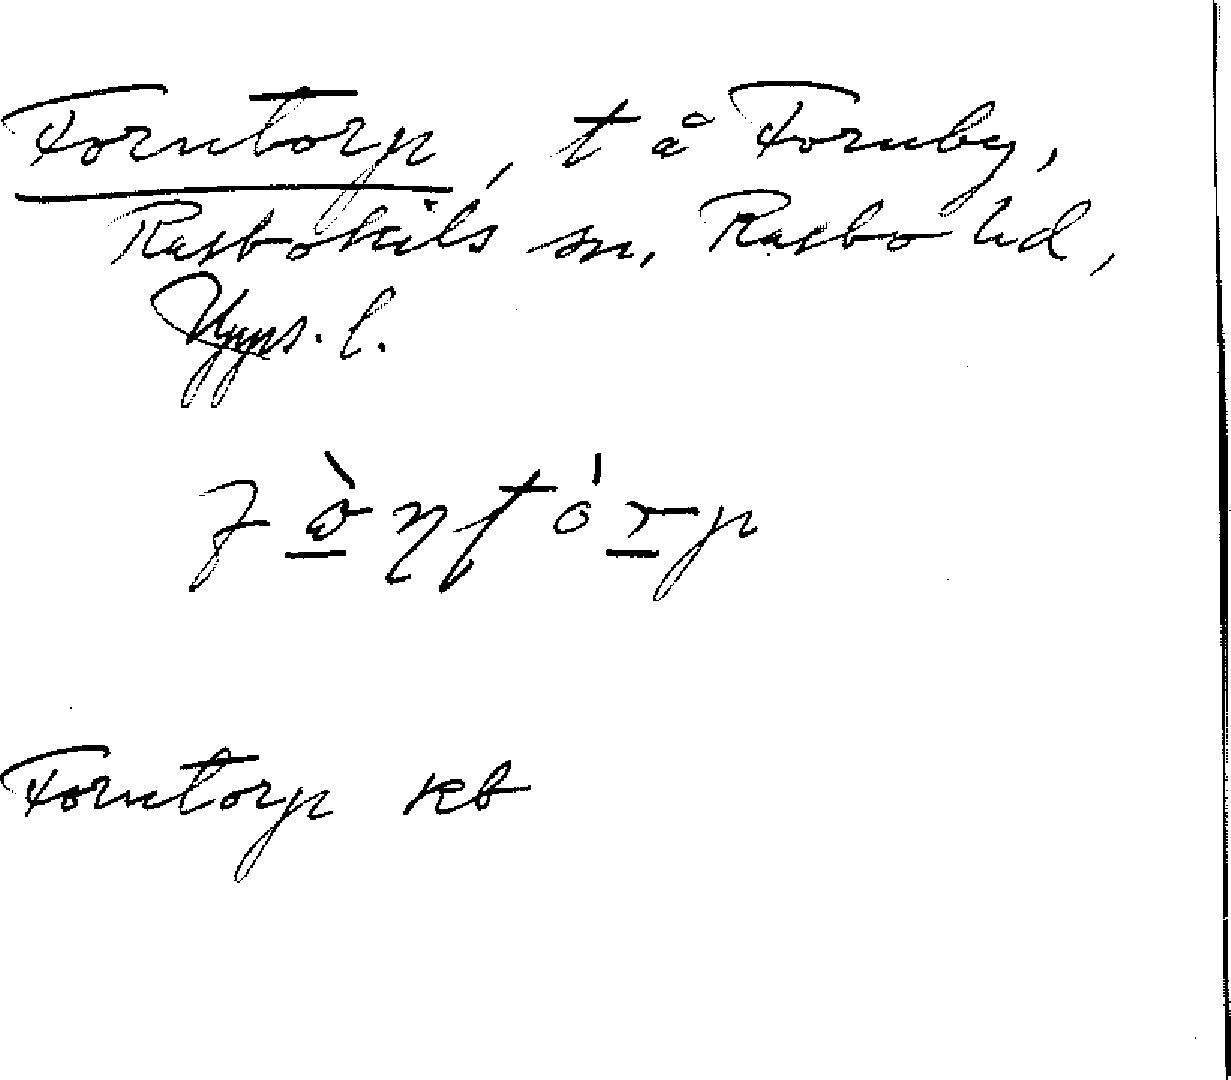 Forntorp, t å Fornby,
Rasbokils sn, Rasbo hd,
Upps. l.
Forntorp kb